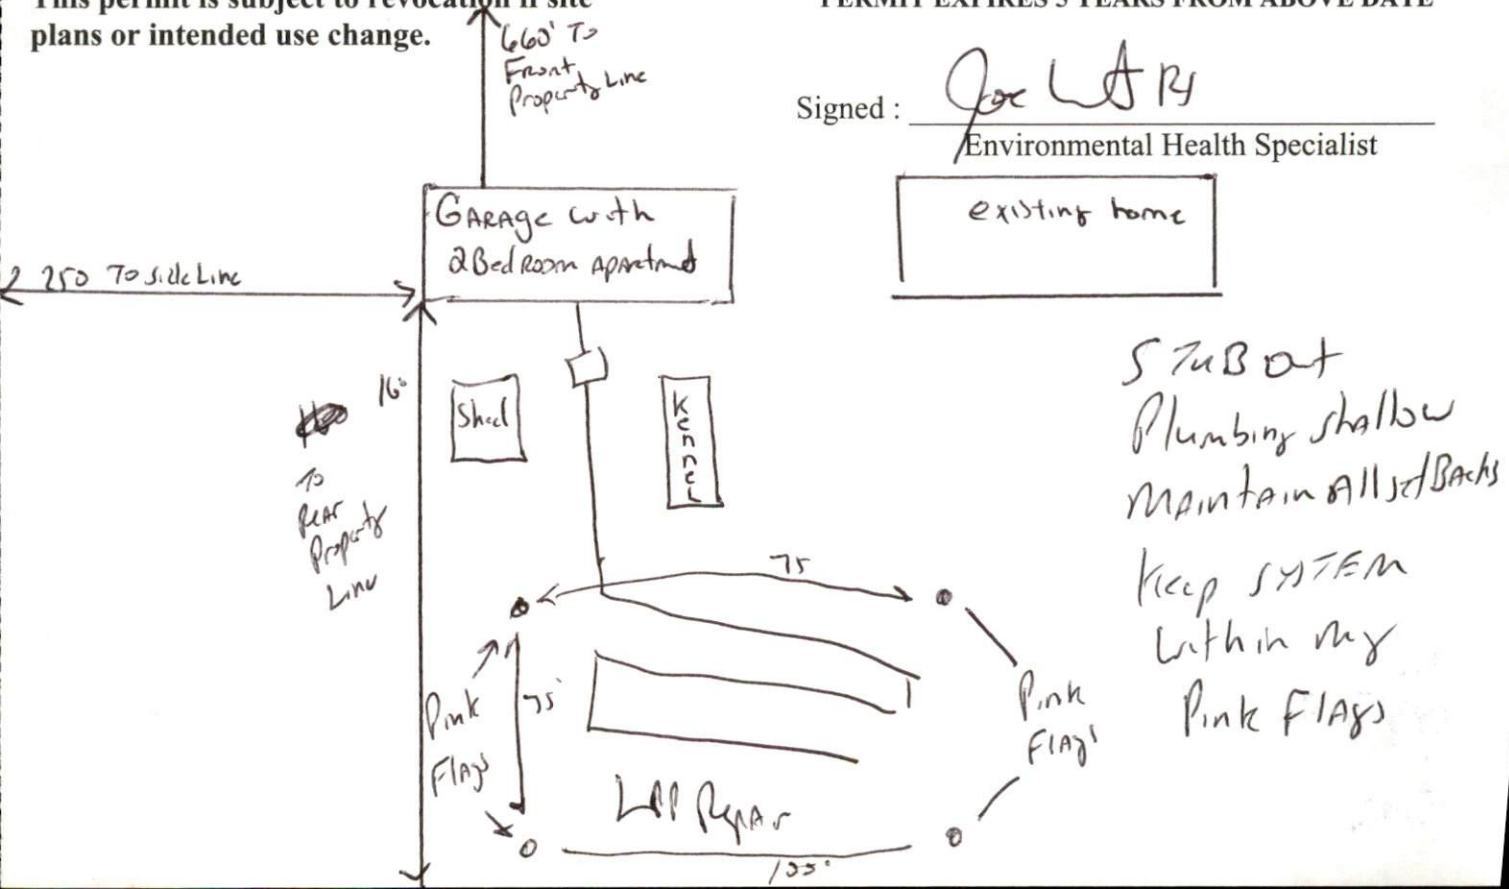 This permit is subject to revocation if site
plans or intended use change.
PERMIT EXPIRES 5 YEARS FROM ABOVE DATE
660' To
Front
Property Line
Signed :
Environmental Health Specialist
GARAge with
2 Bed Room Apartment
existing home
250 To Side Line
To
Rear
Property
Line
Shed
Kennel
STUB Out
Plumbing shallow
MAintain All setBAcks
Keep SYSTEM
within my
Pink FlAgs
75
75'
Pink
FlAgs
Pink
FlAgs
LPP RepAir